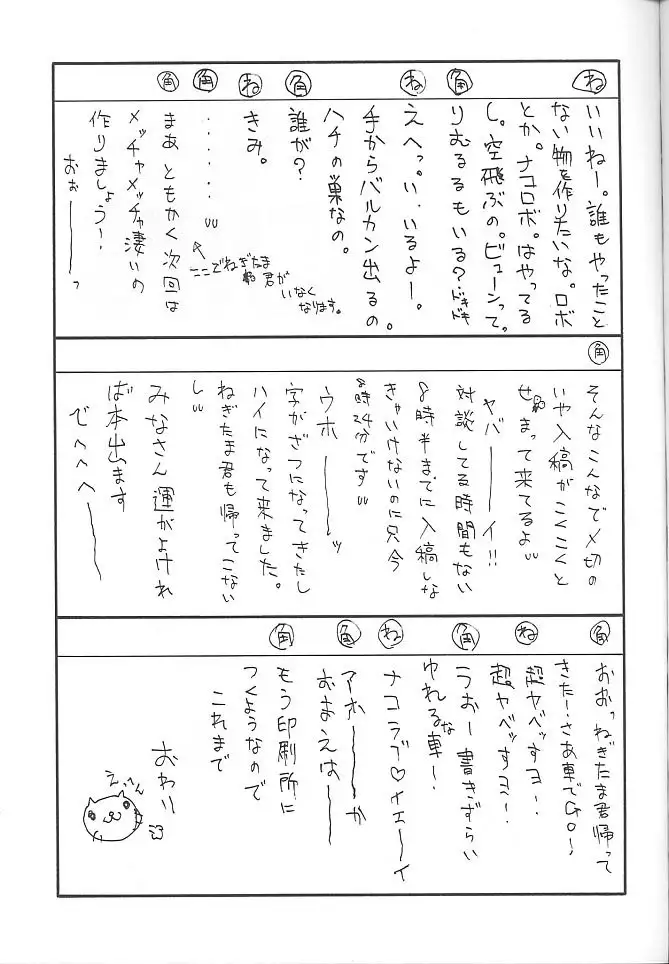 ね
いいねー。誰もやったこと
ない物を作りたいな。ロボ
とか。ナコロボ。はやってる
し。空飛ぶの。ビューンって。
角
りむるるもいる?ドキドキ
ね
えへっ。い、いるよー。
手からバルカン出るの。
ハチの巣なの。
角
誰が?
ね
きみ。
角
・・・・・・
ここでねぎたま
君が
いなく
なります。
角
まぁともかく次回は
メッチャメッチャ凄いの
作りましょう!
おぉーーーっ
角
そんなこんなで〆切の
いや入稿がこくこくと
せまって来てるよ
ヤバーーーイ!!
対談してる時間もない
8時半までに入稿しな
きゃいけないのに只今
8時24分です
ウホーーーッ
字がざつになってきたし
ハイになって来ました。
ねぎたま君も帰ってこない
し
みなさん運がよけれ
ば本出ます
でへへへーーー
角
おおっねぎたま君帰って
きたー!さあ車でGO!
ね
超ヤベッすヨ!!
超ヤベッすヨ!
角
うおー書きずらい
ゆれるな車ー!
ね
ナコラブ♡イェーイ
角
アホーーーか
おまえはーーー
角
もう印刷所に
つくようなので
これまで
おわり